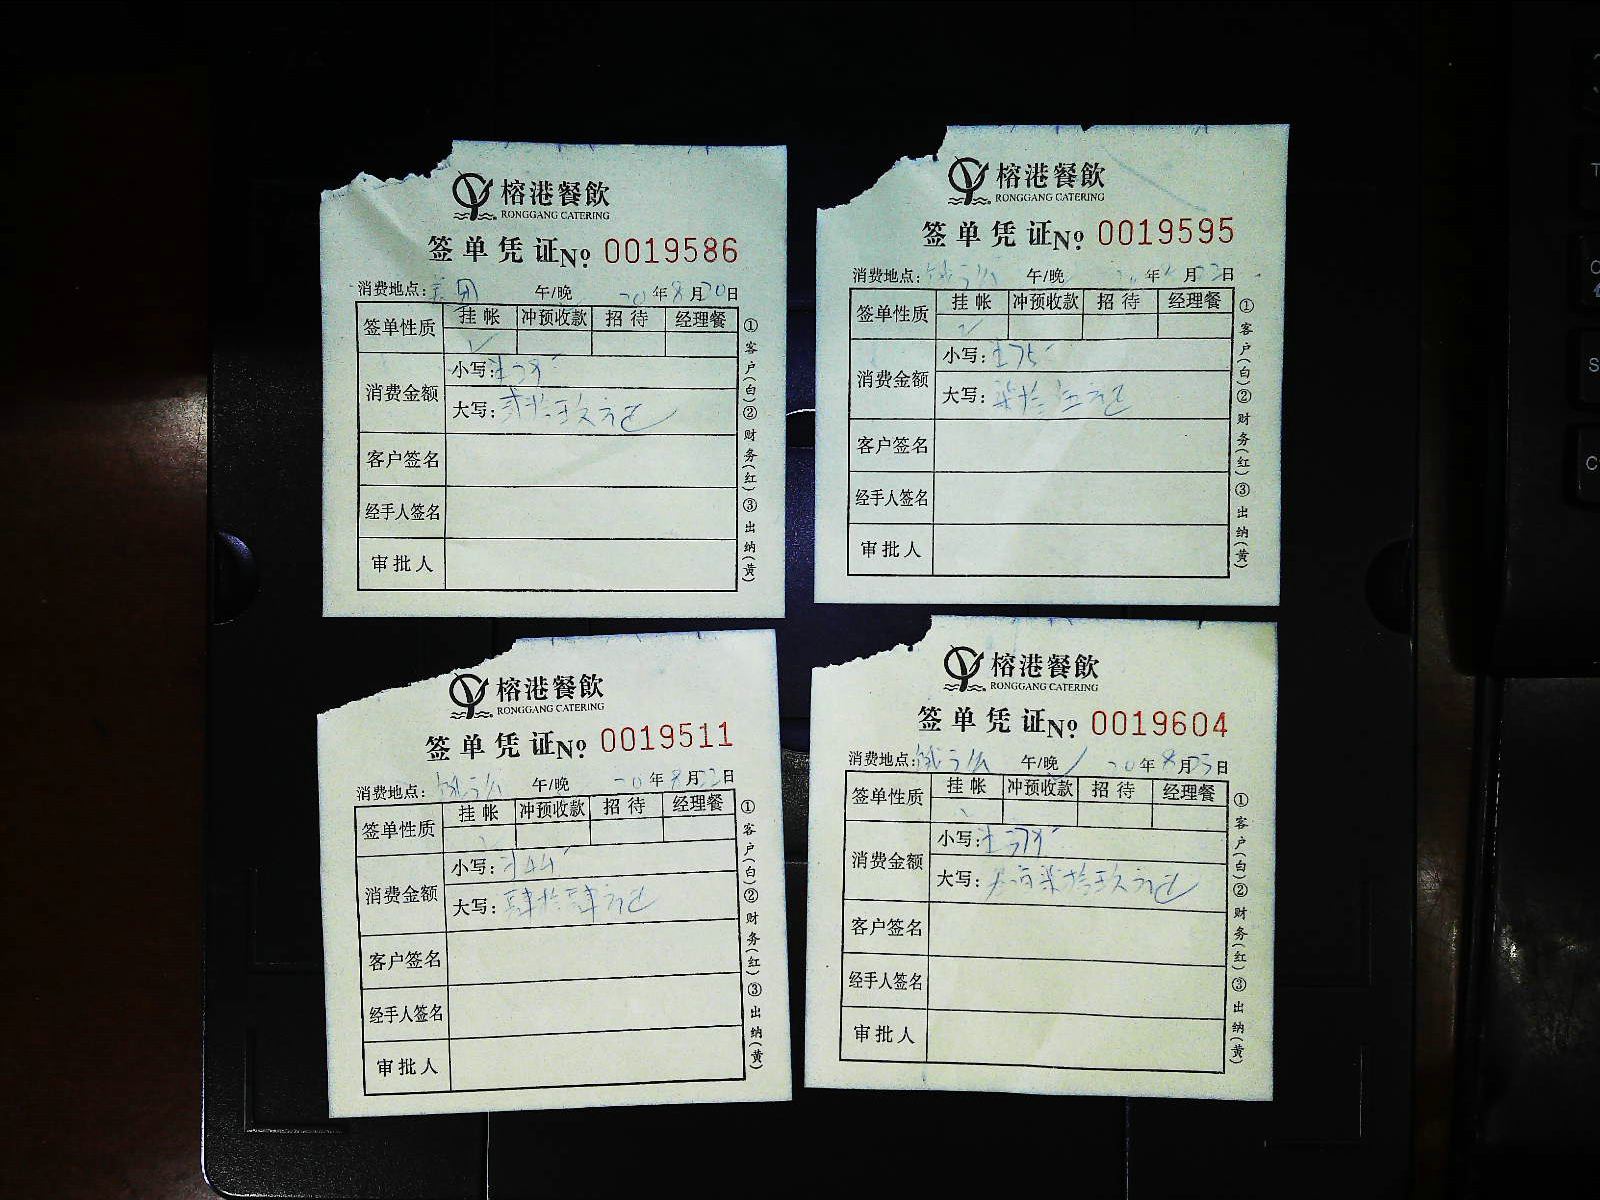 榕港餐飲
RONGGANG CATERING
签单凭证№ 0019586
消费地点：美团 午/晚 20年8月20日
签单性质 挂帐 冲预收款 招待 经理餐
✓
消费金额
小写：
大写：贰拾玖元正
客户签名
经手人签名
审批人
①客户(白)②财务(红)③出纳(黄)
榕港餐飲
RONGGANG CATERING
签单凭证№ 0019595
消费地点： 午/晚 年 月 日
签单性质 挂帐 冲预收款 招待 经理餐
✓
消费金额
小写：¥75
大写：柒拾伍元正
客户签名
经手人签名
审批人
①客户(白)②财务(红)③出纳(黄)
榕港餐飲
RONGGANG CATERING
签单凭证№ 0019511
消费地点： 午/晚 20年8月22日
签单性质 挂帐 冲预收款 招待 经理餐
消费金额
小写：¥44
大写：肆拾肆元正
客户签名
经手人签名
审批人
①客户(白)②财务(红)③出纳(黄)
榕港餐飲
RONGGANG CATERING
签单凭证№ 0019604
消费地点： 午/晚 ✓ 20年8月 日
签单性质 挂帐 冲预收款 招待 经理餐
消费金额
小写：
大写： 佰柒拾玖元正
客户签名
经手人签名
审批人
①客户(白)②财务(红)③出纳(黄)